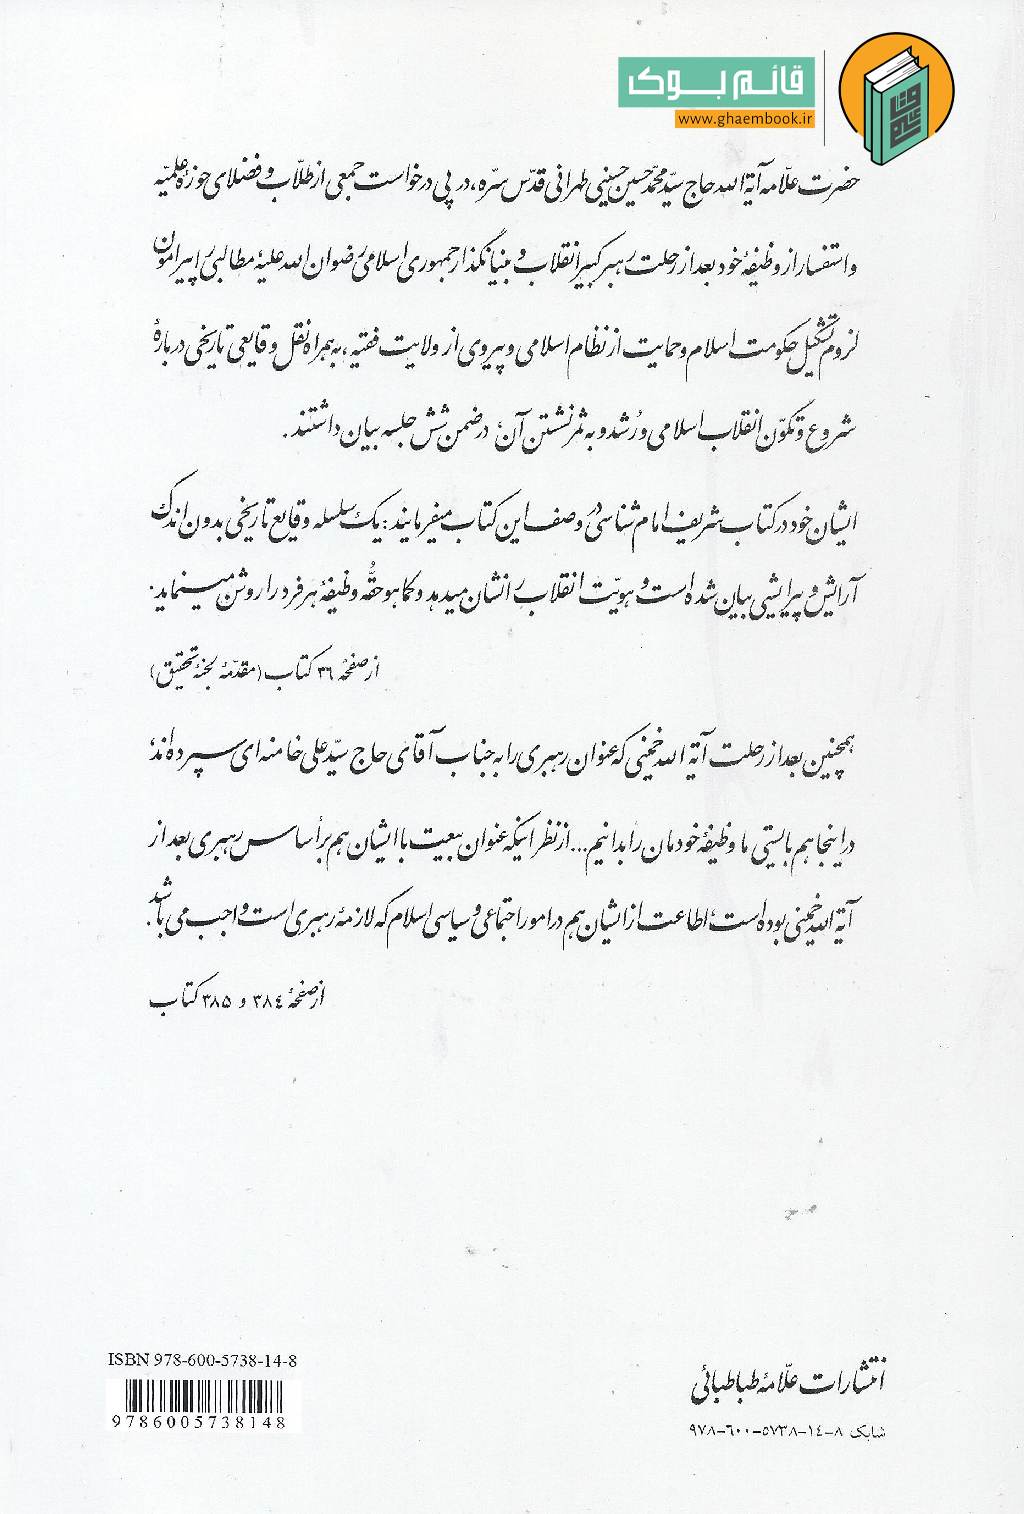 قائم بوک
www.ghaembook.ir
حضرت علّامه آیة الله حاج سیّد محمّد حسین حسینی طهرانی قدّس سرّه، در پی درخواست جمعی از طلّاب و فضلای حوزهٔ علمیّه
و استفسار از وظیفهٔ خود بعد از رحلت رهبر کبیر انقلاب و بنیانگذار جمهوری اسلامی رضوان الله علیه مطالبی را پیرامون
لزوم تشکیل حکومت اسلام و حمایت از نظام اسلامی و پیروی از ولایت فقیه، به همراه نقل وقایعی تاریخی دربارهٔ
شروع و تکوّن انقلاب اسلامی و رُشد و به ثمر نشستن آن، در ضمن شش جلسه بیان داشتند.
ایشان خود در کتاب شریف امام شناسی در وصف این کتاب میفرمایند: یک سلسله وقایع تاریخی بدون اندک
آرایش و پیرایشی بیان شده است و هویّت انقلاب را نشان میدهد و کما هو حقُّه وظیفهٔ هر فرد را روشن مینماید.
از صفحهٔ ۳۶ کتاب (مقدّمهٔ لجنهٔ تحقیق)
همچنین بعد از رحلت آیة الله خمینی که عنوان رهبری را به جناب آقای حاج سیّد علی خامنه ای سپرده اند،
در اینجا هم بایستی ما وظیفهٔ خودمان را بدانیم... از نظر اینکه عنوان بیعت با ایشان هم بر أساس رهبری بعد از
آیة الله خمینی بوده است، اطاعت از ایشان هم در امور اجتماعی و سیاسی اسلام که لازمهٔ رهبری است واجب می باشد.
از صفحهٔ ۳۸٤ و ۳۸۵ کتاب
ISBN 978-600-5738-14-8
9786005738148
انتشارات علّامهٔ طباطبائی
شابک ۸-۱٤-۵۷۳۸-۶۰۰-۹۷۸